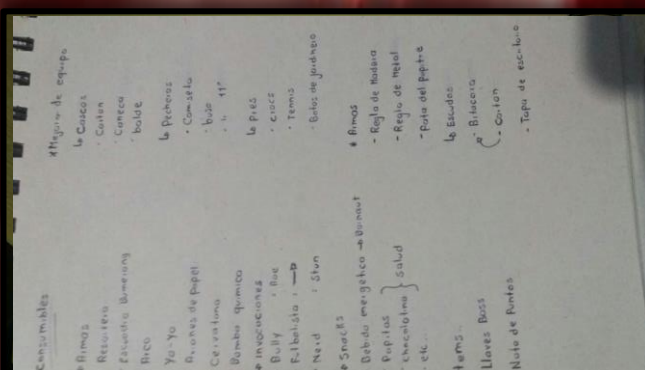 Consumibles
Armas
Resortera
Escuadra Bumerang
Arco
Yo-Yo
Aviones de papel
Cervatana
Bomba quimica
Invocaciones
Bully : Aoe
Futbolista : →
Nerd : Stun
Snacks
Bebida energetica → Burnout
Papitas
chocolatina } salud
etc..
Items..
Llaves Boss
Nota de Puntos
*Mejora de equipo
↳ Cascos
· Carton
· Caneca
· balde
↳ Pecheras
· Camiseta
· buso 11°
↳ Pies
· crocs
· Tennis
· Botas de jardinero
* Armas
- Regla de Madera
- Regla de Metal
- Pata del Pupitre
↳ Escudos
- Bitacora
- carton
- Tapa de escritorio